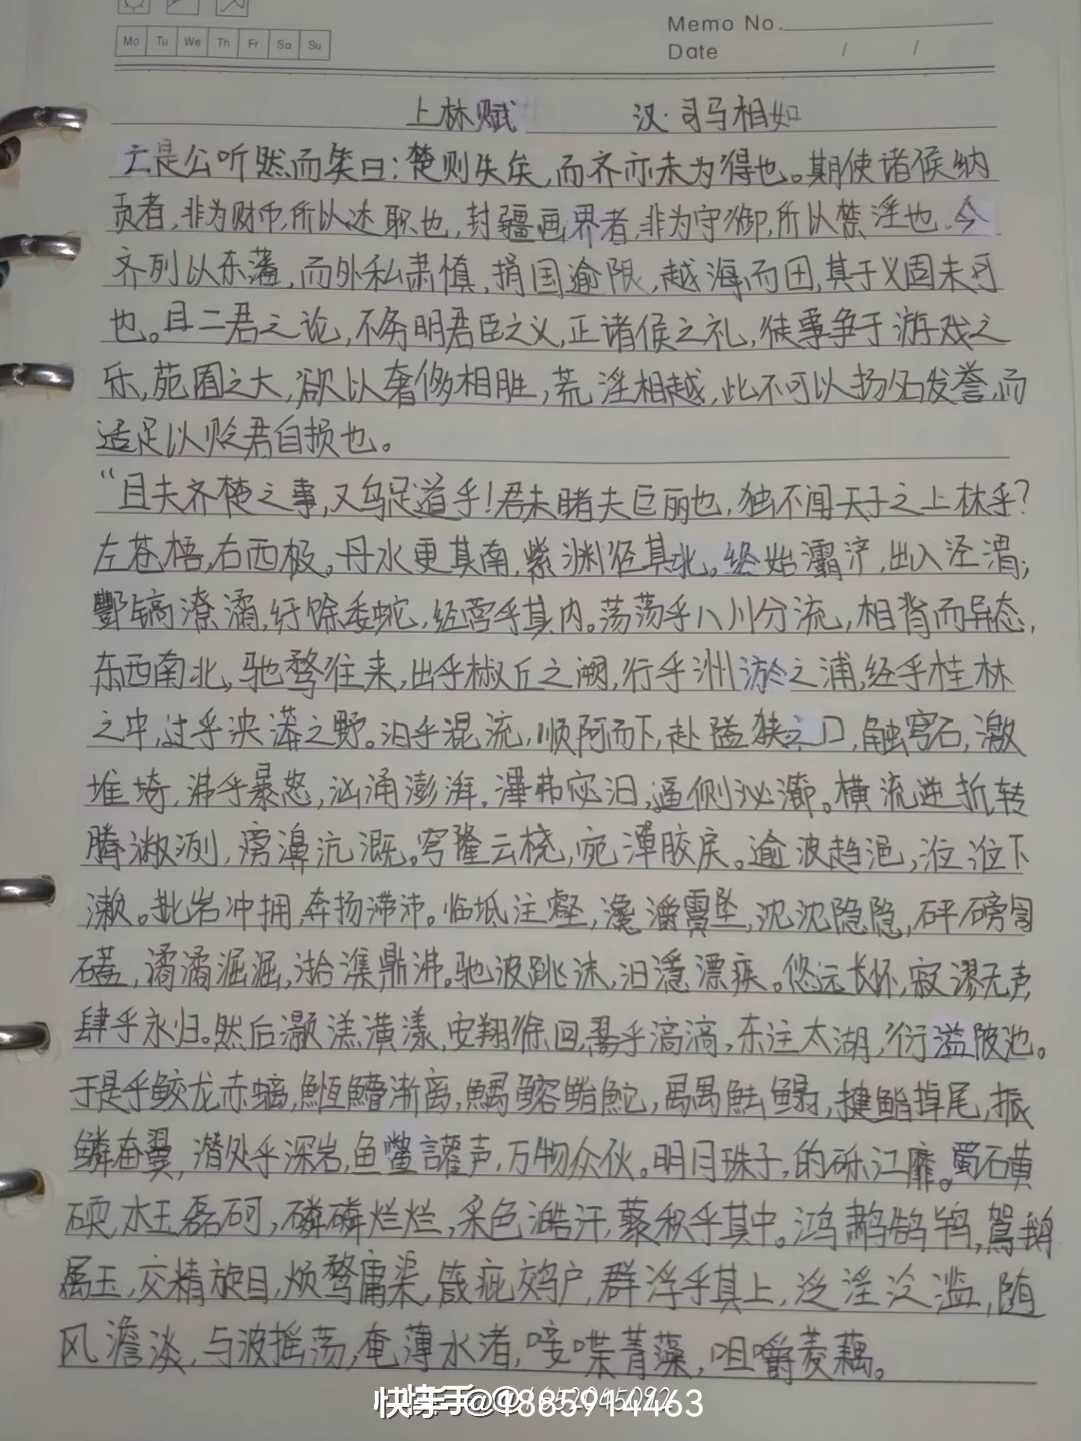 Memo No.
Mo Tu We Th Fr Sa Su
Date / /
上林赋 汉·司马相如
亡是公听然而笑曰：楚则失矣，而齐亦未为得也。期使诸侯纳
贡者，非为财币，所以述职也，封疆画界者，非为守御，所以禁淫也。今
齐列以东藩，而外私肃慎，捐国逾限，越海而田，其于义固未可
也。且二君之论，不务明君臣之义，正诸侯之礼，徒事争于游戏之
乐，苑囿之大，欲以奢侈相胜，荒淫相越，此不可以扬名发誉，而
适足以贬君自损也。
“且夫齐楚之事，又乌足道乎！君未睹夫巨丽也，独不闻天子之上林乎？
左苍梧，右西极，丹水更其南，紫渊径其北。终始灞浐，出入泾渭；
酆镐潦潏，纡馀委蛇，经营乎其内。荡荡乎八川分流，相背而异态，
东西南北，驰骛往来，出乎椒丘之阙，行乎洲淤之浦，经乎桂林
之中，过乎泱漭之野。汩乎混流，顺阿而下，赴隘狭之口，触穹石，激
堆埼，沸乎暴怒，汹涌澎湃，滭弗宓汩，逼侧泌瀄。横流逆折，转
腾潎洌，滂濞沆溉。穹隆云桡，宛潬胶戾。逾波趋浥，涖涖下
濑。批岩冲拥，奔扬滞沛。临坻注壑，瀺灂霣坠，沈沈隐隐，砰磅訇
磕，潏潏淈淈，湁潗鼎沸。驰波跳沫，汩㴔漂疾。悠远长怀，寂漻无声，
肆乎永归。然后灏溔潢漾，安翔徐回，翯乎滈滈，东注太湖，衍溢陂池。
于是乎鲛龙赤螭，䱎䲛渐离，鰅鳙鳍鮀，禺禺魼鳎，揵鳍掉尾，振
鳞奋翼，潜处乎深岩，鱼鳖讙声，万物众伙。明月珠子，的砾江靡。蜀石黄
碝，水玉磊砢，磷磷烂烂，采色澔汗，藂积乎其中。鸿鹔鹄鸨，鴐鹅
属玉，交精旋目，烦鹜庸渠，箴疵䴔卢，群浮乎其上，泛淫泛滥，随
风澹淡，与波摇荡，奄薄水渚，唼喋菁藻，咀嚼菱藕。
快手@1865914463